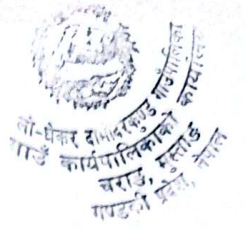 लो-घेकर दामोदरकुण्ड गाउँपालिका
गाउँ कार्यपालिकाको कार्यालय
चराङ, मुस्ताङ
गण्डकी प्रदेश, नेपाल